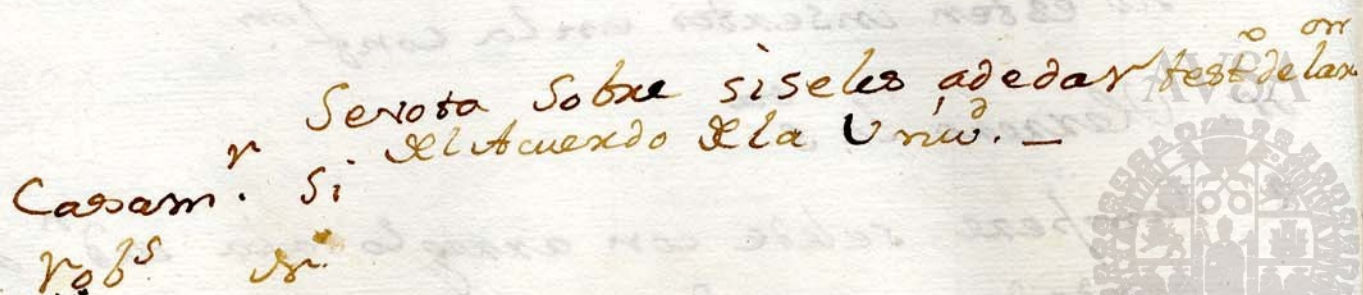 Se vota sobre si se les a de dar testº de la xon
del Acuerdo de la Univd. —
Casamr. Si
Robs
AVSA